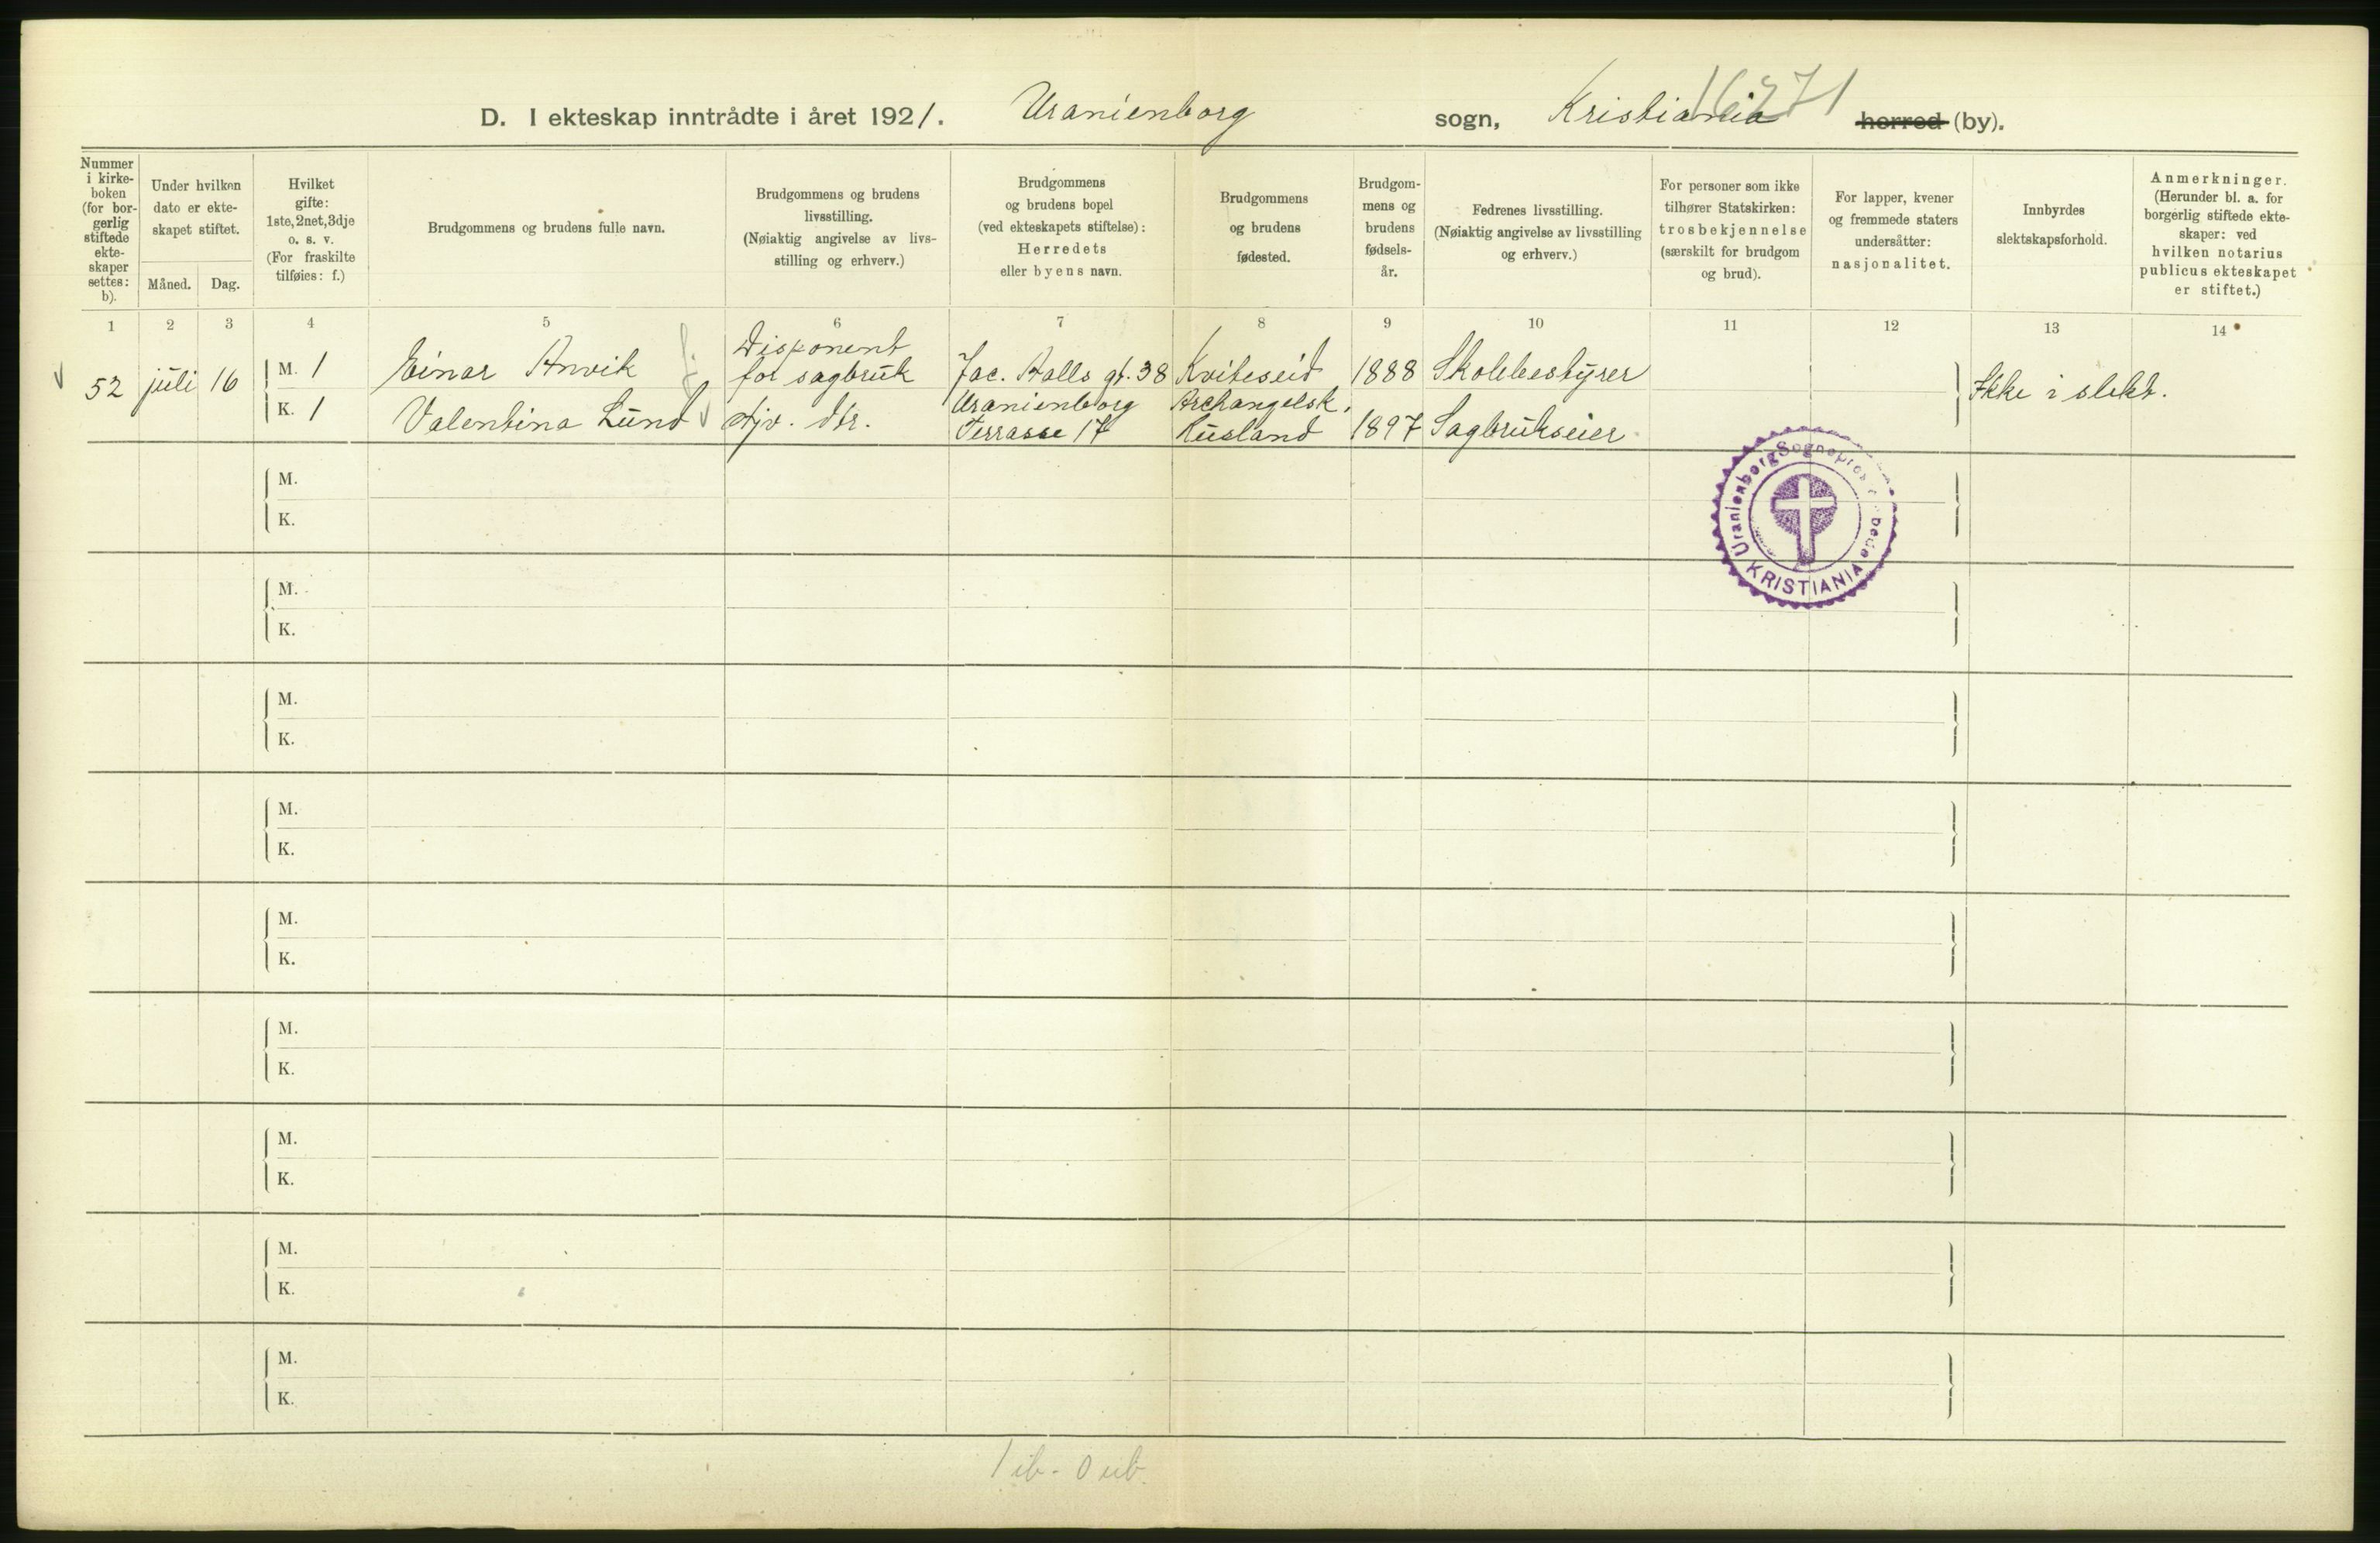 D. I ekteskap inntrådte i året 1921. Uranienborg sogn, Kristiania herred (by).
Nummer i kirke-boken (for bor-gerlig stiftede ekte-skaper settes: b).
Under hvilken dato er ekte-skapet stiftet.
Måned. Dag.
Hvilket gifte: 1ste, 2net, 3dje o. s. v. (For fraskilte tilføies: f.)
Brudgommens og brudens fulle navn.
Brudgommens og brudens livsstilling. (Nøiaktig angivelse av livs-stilling og erhverv.)
Brudgommens og brudens bopel (ved ekteskapets stiftelse): Herredets eller byens navn.
Brudgommens og brudens fødested.
Brudgom-mens og brudens fødsels-år.
Fedrenes livsstilling. (Nøiaktig angivelse av livsstilling og erhverv.)
For personer som ikke tilhører Statskirken: trosbekjennelse (særskilt for brudgom og brud).
For lapper, kvener og fremmede staters undersåtter: nasjonalitet.
Innbyrdes slektskapsforhold.
Anmerkninger. (Herunder bl. a. for borgerlig stiftede ekte-skaper: ved hvilken notarius publicus ekteskapet er stiftet.)
1 2 3 4 5 6 7 8 9 10 11 12 13 14
52 juli 16
M. 1 Einar Anvik Disponent for sagbruk Jac. Aalls gt. 38 Kviteseid 1888 Skolebestyrer
K. 1 Valentina Lund Uranienborg Terrasse 17 Archangelsk, Rusland 1897 Sagbrukseier
Ikke i slekt.
Uranienborg
KRISTIANIA
M.
K.
M.
K.
M.
K.
M.
K.
M.
K.
M.
K.
M.
K.
M.
K.
M.
K.
1 ib. - 0 ub.